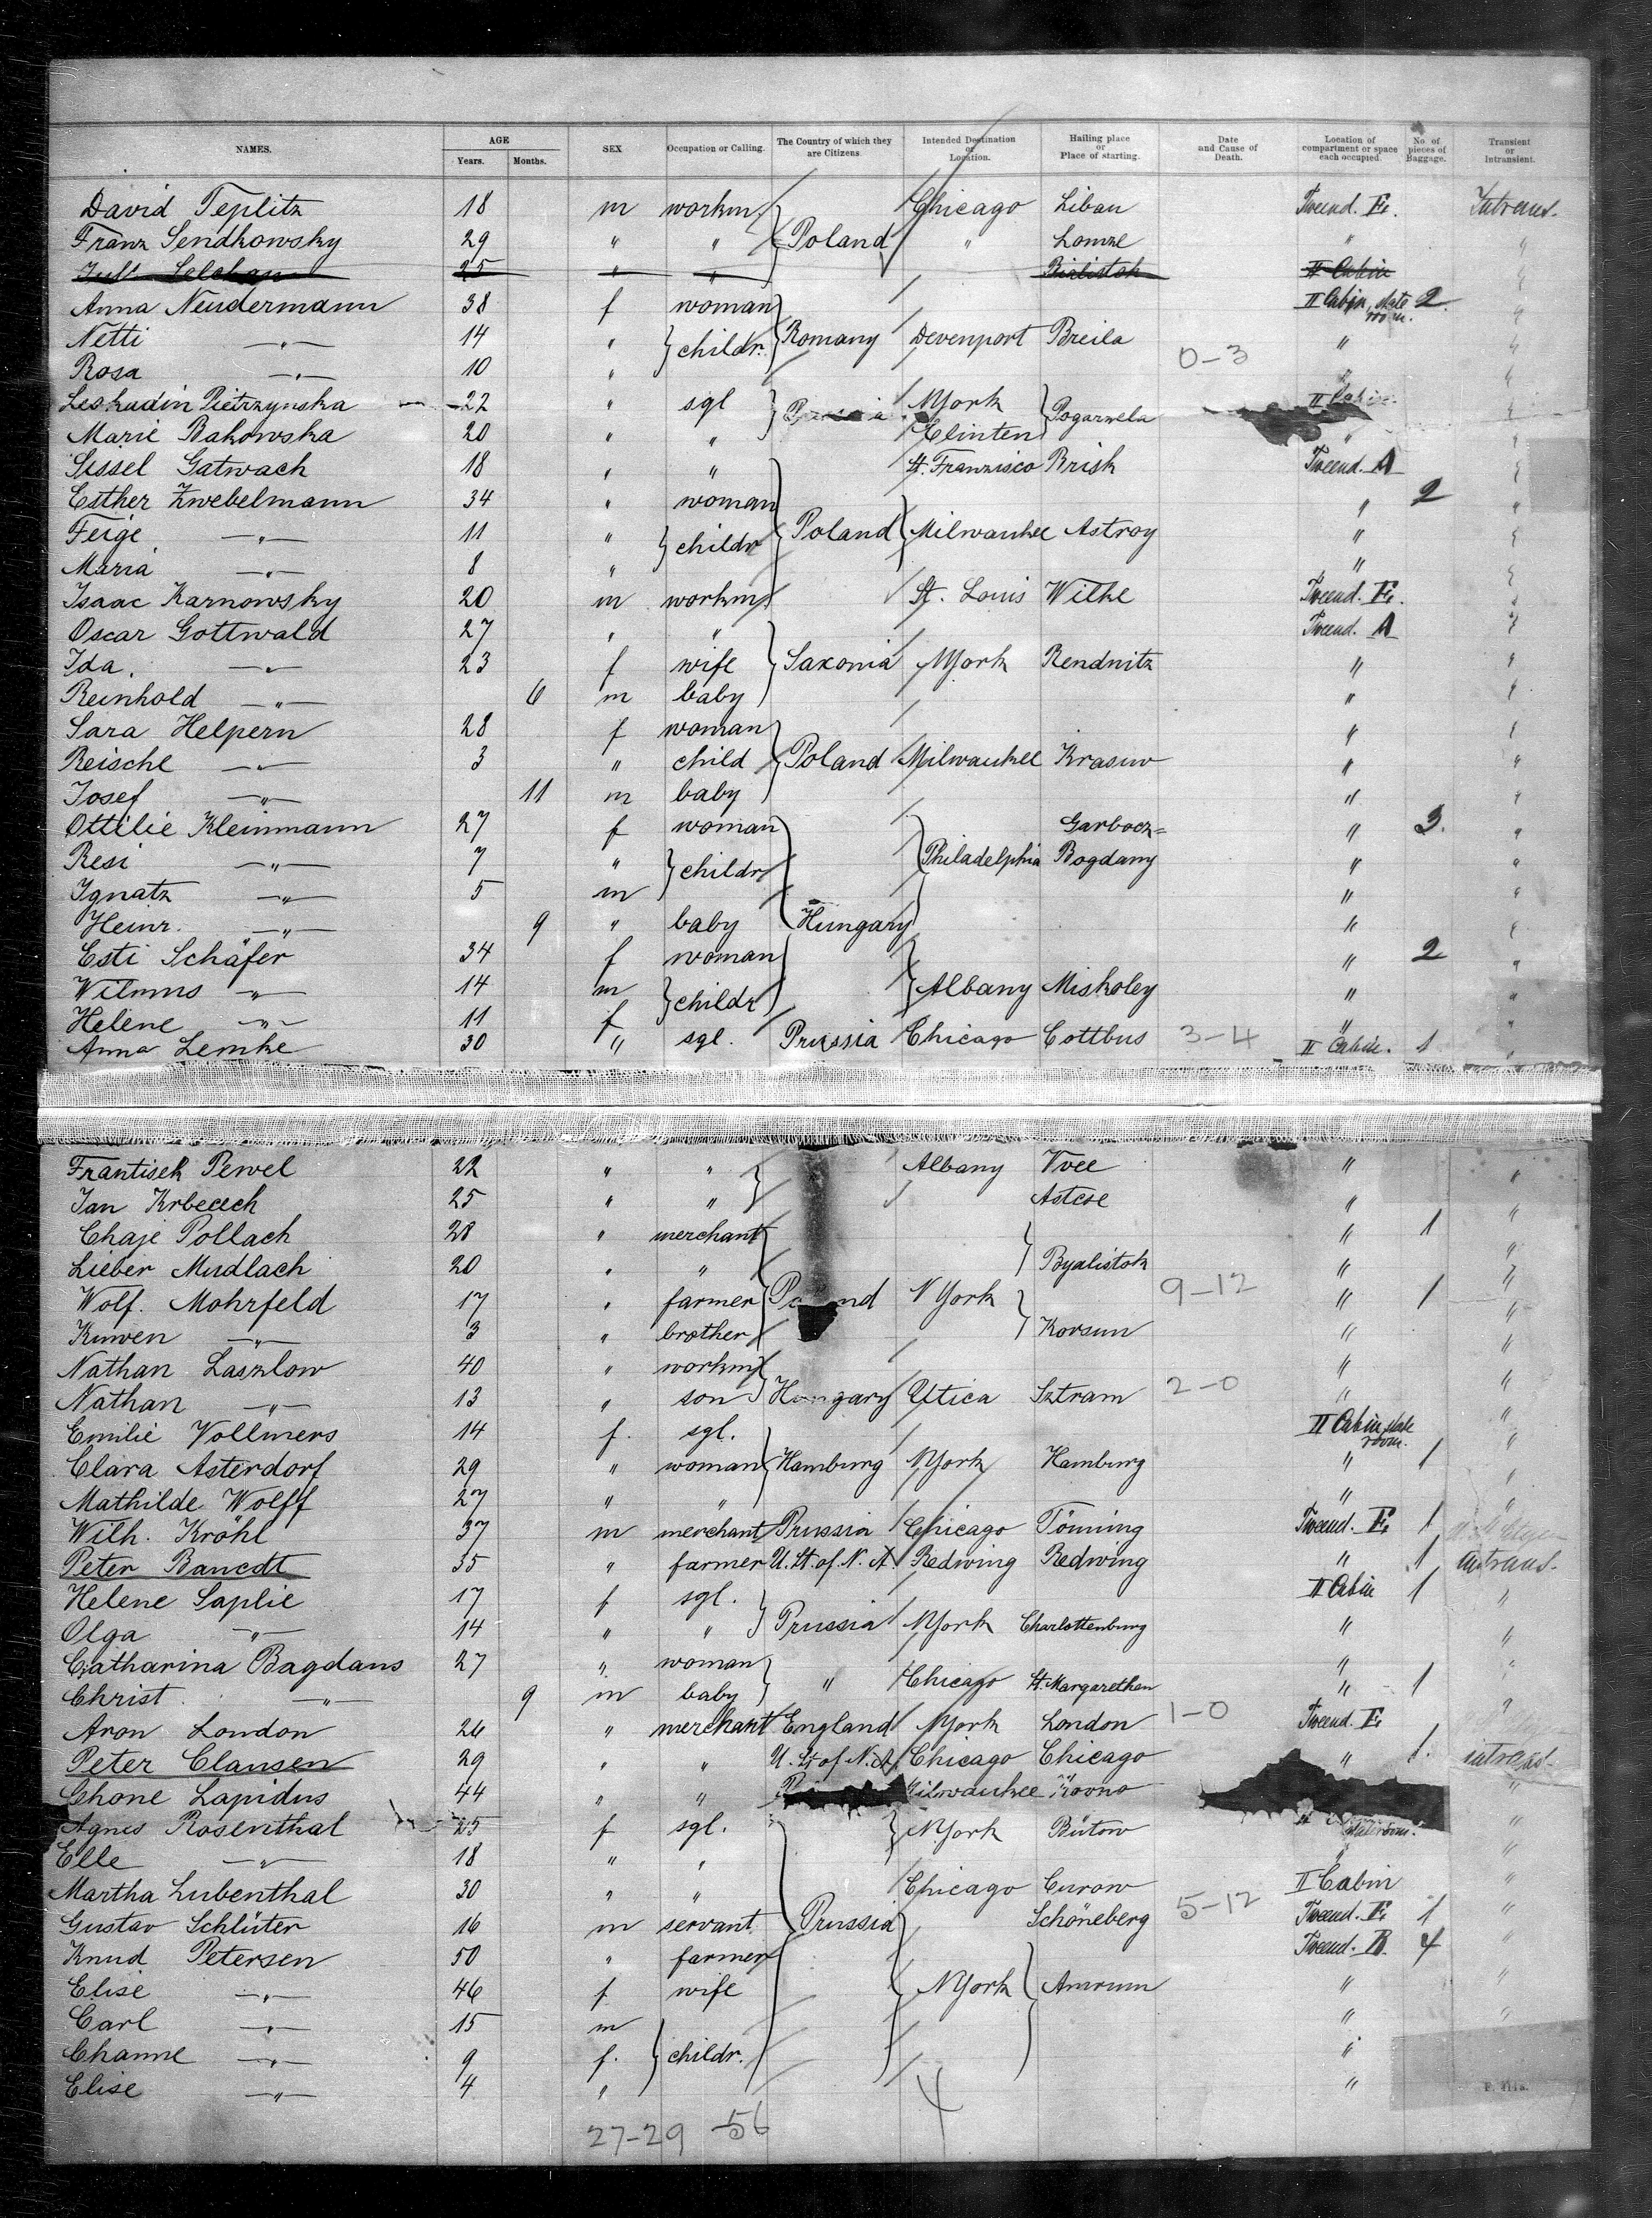 NAMES. AGE Years. Months. SEX Occupation or Calling. The Country of which they are Citizens. Intended Destination or Location. Hailing place or Place of starting. Date and Cause of Death. Location of compartment or space each occupied. No. of pieces of Baggage. Transient or Intransient.
David Teplitz 18 m workm. Chicago Libau Tweend. E. Intrans.
Franz Sendkowsky 29 " " Poland " Lomze " "
25 " " Bialistok II Cabin "
Anna Neudermann 38 f woman II Cabin state room. 2 "
Netti —"— 14 " childr. Romany Devenport Breila " "
Rosa —"— 10 " 0-3 " "
Pietrzynska 22 " sgl NYork Pogarzela II Cabin "
Marie Bakowska 20 " " Clinten " "
Sissel Gatwach 18 " " St. Franzisco Brisk Tweend. A "
Esther Zwebelmann 34 " woman " 2 "
Feige —"— 11 " childr Poland Milwaukee Astroy " "
Maria —"— 8 " " "
Isaac Karnowsky 20 m workm St. Louis Wilke Tweend. E. "
Oscar Gottwald 27 " " Tweend. A "
Ida. —"— 23 f wife Saxonia NYork Rendnitz " "
Reinhold —"— 6 m baby " "
Sara Helpern 28 f woman " "
Reische —"— 3 " child Poland Milwaukee Krasuw " "
Josef —"— 11 m baby " "
Ottilie Kleinmann 27 f woman Garbocz= " 3. "
Resi —"— 7 " childr Philadelphia Bogdany " "
Ignatz —"— 5 m " "
Heinr. —"— 9 " baby Hungary " "
Esti Schäfer 34 f woman " 2 "
Wilmns —"— 14 m childr Albany Miskoley " "
Helene —"— 11 f " "
Anna Lemke 30 " sgl. Prussia Chicago Cottbus 3-4 II Cabin. 1 "
Frantisek Pewel 22 " " Albany Vvee " "
Jan Krbecech 25 " " Astcse " "
Chaje Pollach 28 " merchant " 1 "
Lieber Mudlach 20 " " Byalistok " "
Wolf. Mohrfeld 17 " farmer Poland NYork 9-12 " 1 "
Kuwen —"— 3 " brother Korsun " "
Nathan Laszlow 40 " workm " "
Nathan —"— 13 " son Hungary Utica Sztram 2-0 " "
Emilie Vollmers 14 f. sgl. II Cabin state room. "
Clara Asterdorf 29 " woman Hamburg NYork Hamburg " 1 "
Mathilde Wolff 27 " " " "
Wilh. Kröhl 37 m merchant Prussia Chicago Tönning Tweend. E. 1
Peter Bancdt 35 " farmer U. St. of. N. A. Redwing Redwing " 1 intrans.
Helene Saplie 17 f sgl. II Cabin 1 "
Olga —"— 14 " " Prussia NYork Charlottenburg " "
Catharina Bagdans 27 " woman " "
Christ. —"— 9 m baby " Chicago St. Margarethen " 1
Aron London 26 " merchant England NYork London 1-0 Tweend. E.
Peter Clausen 29 " " U. St of N. A. Chicago Chicago " 1. intrans.
Chone Lapidus 44 " " Milwaukee Kovno "
Agnes Rosenthal 25 f sgl. NYork Bütow "
Elle —"— 18 " " " "
Martha Lubenthal 30 " " Chicago Curow II Cabin "
Gustav Schlüter 16 m servant. Prussia Schöneberg 5-12 Tweend. E. 1 "
Knud Petersen 50 " farmer Tweend. B. 4 "
Elise —"— 46 f wife NYork Amrum " "
Carl —"— 15 m " "
Channe —"— 9 f. childr. "
Elise —"— 4 " "
27-29 56